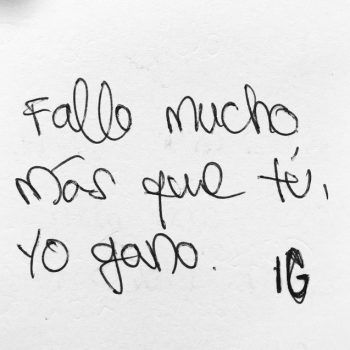 Fallo mucho
más que tú,
yo gano.
IG